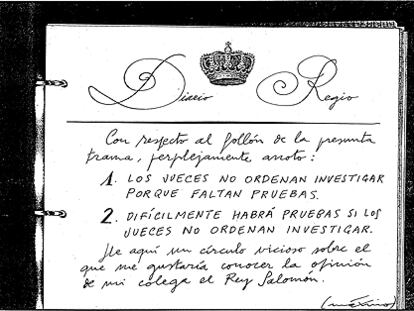 Diario Regio
Con respecto al follón de la presunta
trama, perplejamente anoto:
1. LOS JUECES NO ORDENAN INVESTIGAR
PORQUE FALTAN PRUEBAS.
2. DIFÍCILMENTE HABRÁ PRUEBAS SI LOS
JUECES NO ORDENAN INVESTIGAR.
He aquí un círculo vicioso sobre el
que me gustaría conocer la opinión
de mi colega el Rey Salomón.
(máximo)